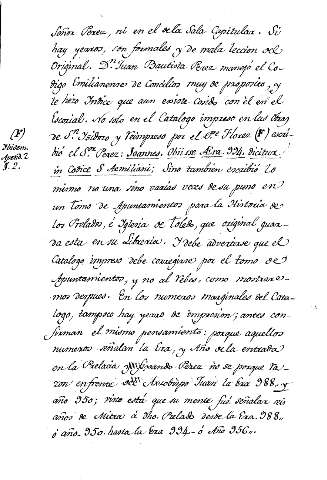 Señor Perez, ni en el de la Sala Capitular. Si
hay yerros, son formales y de mala leccion del
Original. Dn. Juan Bautista Perez manejó el Co-
digo Emilianense de Concilios muy de proposito, y
le hizo Indice que aun existe cosido con él en el
Escorial. No solo en el Catalogo impreso en las Obras
de Sn. Isidoro, y reimpreso por el Pe. Florez (F) escri-
bió el Sor. Perez: Joannes. Obiit Æra. 994. dicitur
in Codice S. Aemiliani; Sino tambien escribió lo
mismo no una sino varias vezes de su puño en
un tomo de Apuntamientos para la Historia de
los Prelados, é Iglesia de Toledo, que original guar-
da esta en su Libreria. Y debe advertirse que el
Catalogo impreso debe corregirse por el tomo de
Apuntamientos, y no al rebes, como mostrare-
mos despues. En los numeros marginales del Cata-
logo, tampoco hay yerro de impresion; antes con-
firman el mismo pensamiento: porque aquellos
numeros señalan la Era, y Año de la entrada
en la Prelacia, y fixando Perez no se porque ra-
zon enfrente del Arzobispo Juan la Era 988. y
año 950; visto está que su mente fué señalar seis
años de Mitra á dho. Prelado desde la Era 988.
ó año 950. hasta la Era 994. ó Año 956.
(F)
Ibidem.
Apend. 2
§. 2.